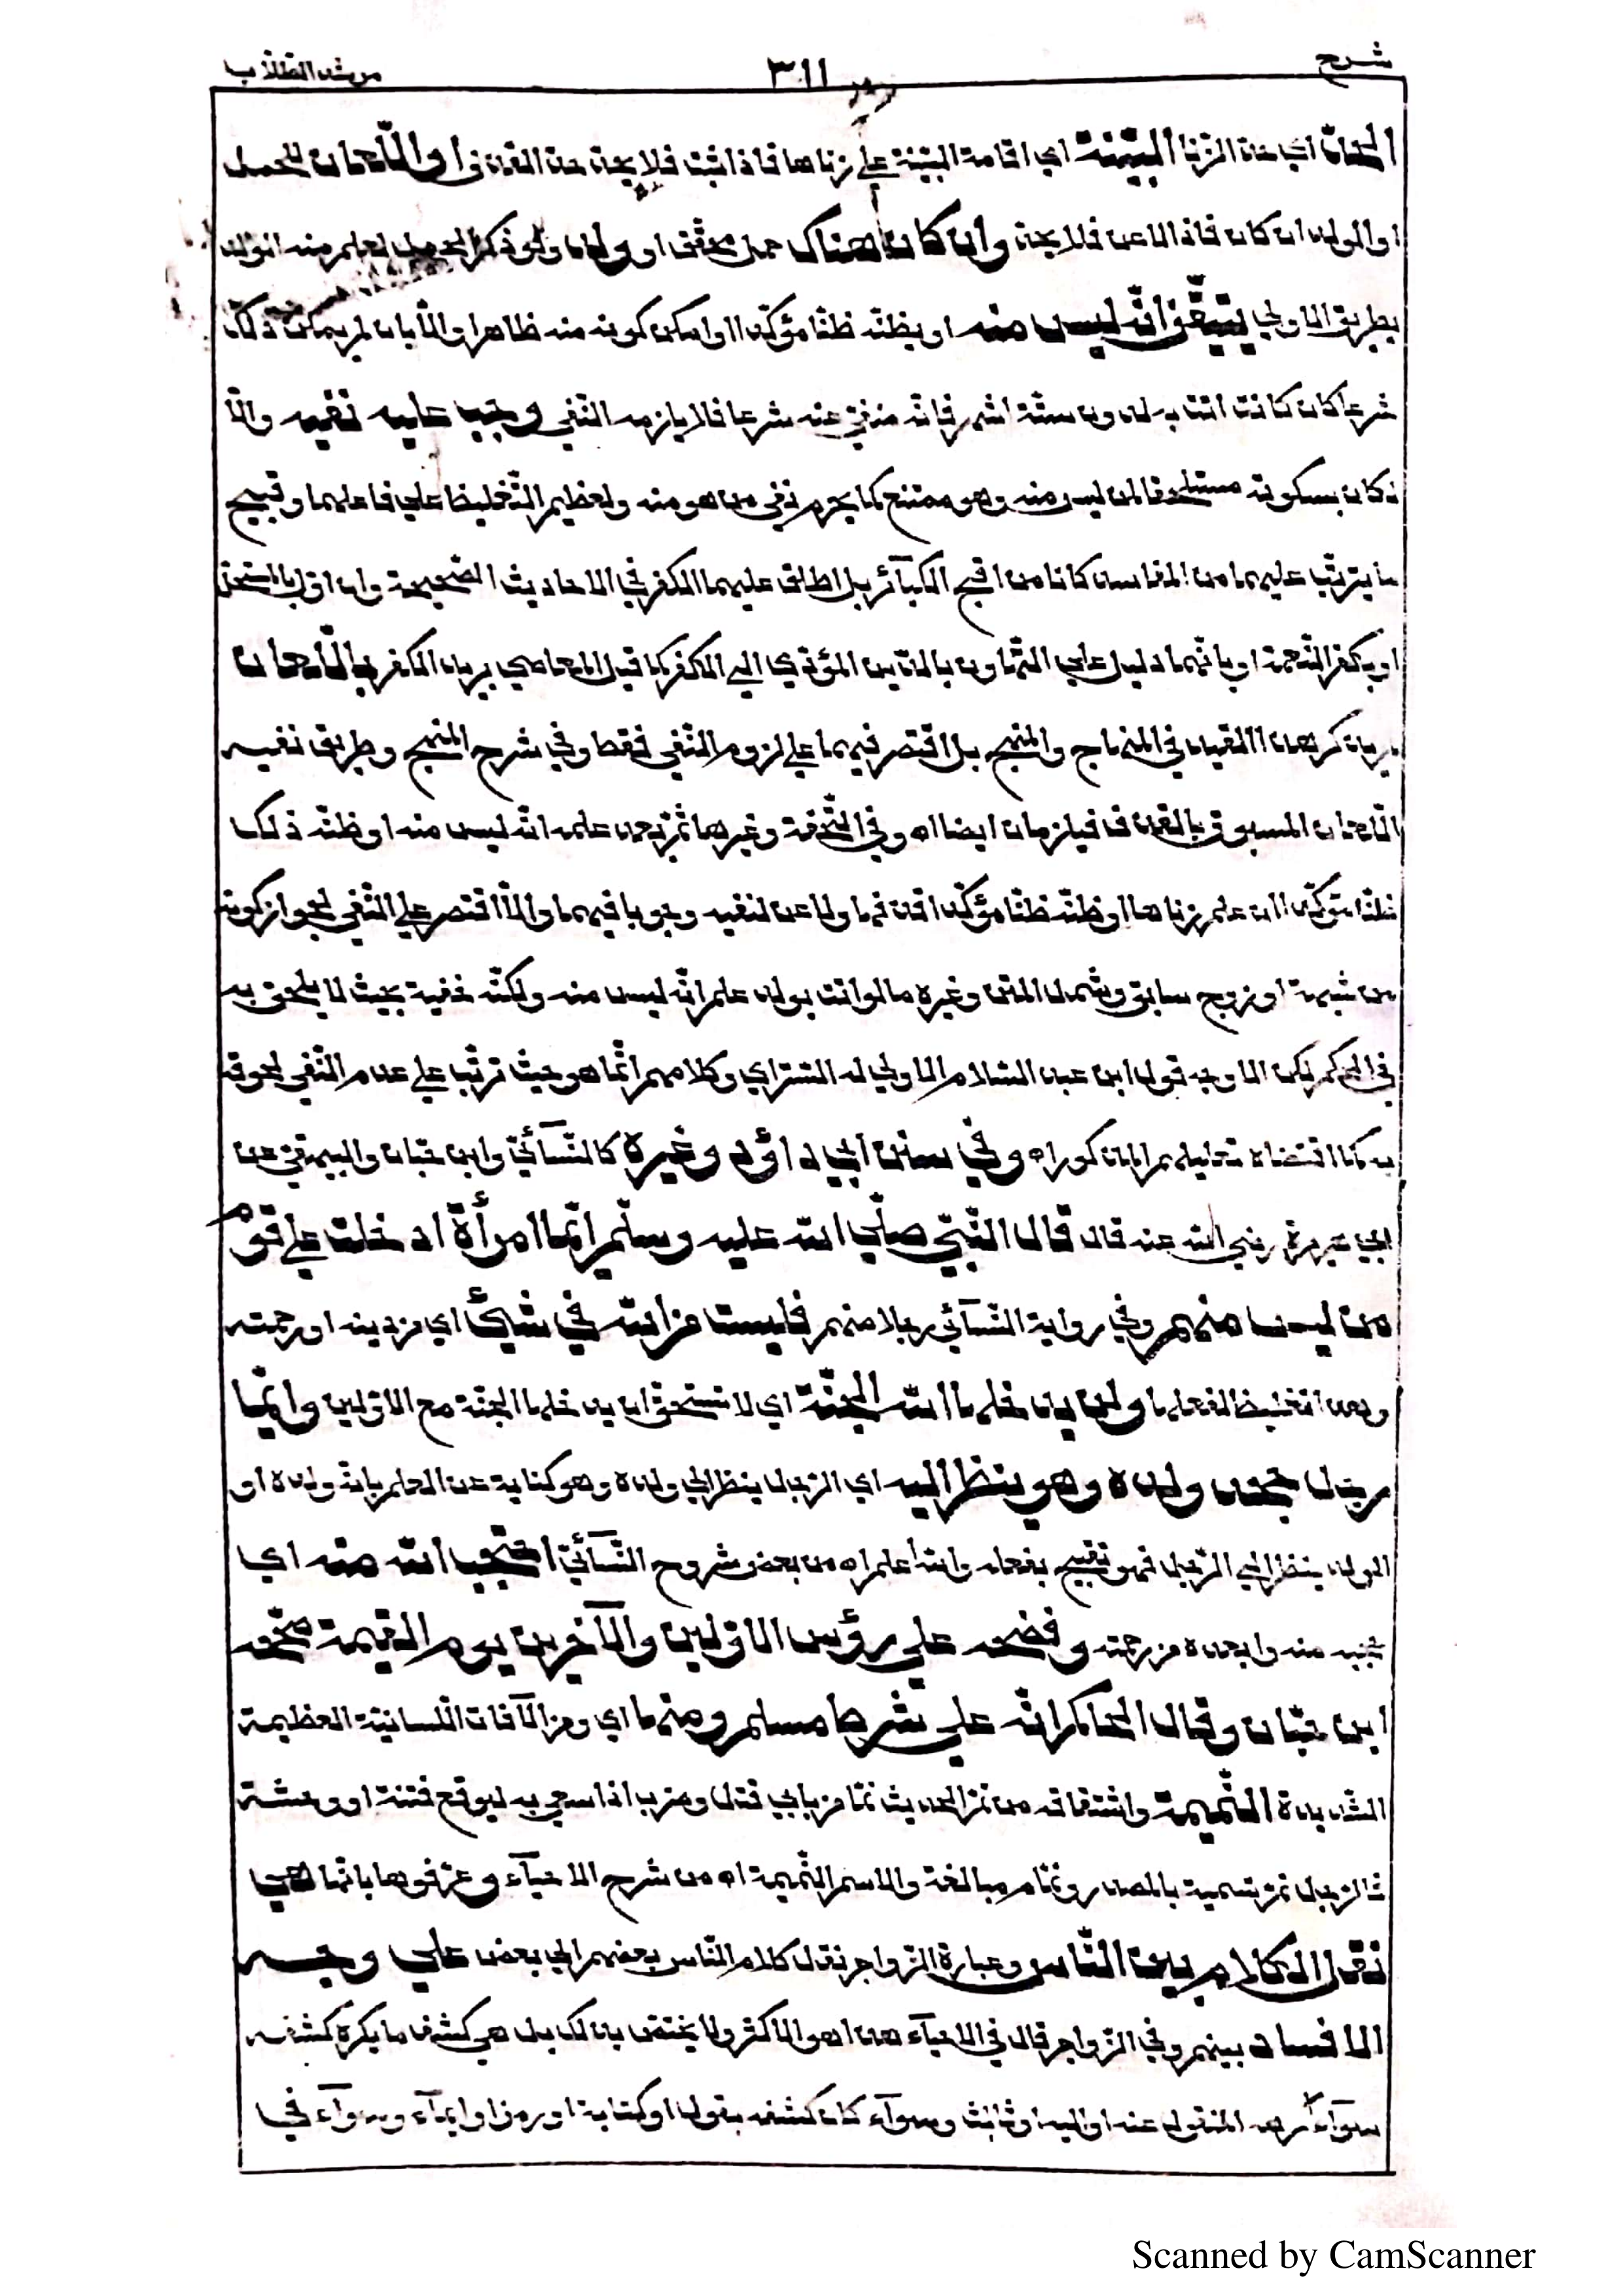 شرح ٣١١ مرشد الطلاب
الحد اي حد الزنا البينة اي اقامة البينة علي زناها فاذا ثبت فلا يحد حد القذف او اللعان للحمل
او الولد ان كان فاذا لاعن فلا يحد وان كان هناك حمل محقق او ولد ولو ذكر الحمل لعلم منه الولد
بطريق الاولي يتيقن انه ليس منه او يظنه ظنا مؤكدا وامكن كونه منه ظاهرا والا بان لم يمكن ذلك
شرعا كان كانت اتت به لدون ستة اشهر فانه منفي عنه شرعا فلا يلزمه النفي وجب عليه نفيه والا
لكان بسكوته مستلحقا لمن ليس منه وهو ممتنع كما يحرم نفي من هو منه ولعظيم التغليظ علي فاعلهما وقبيح
ما يترتب عليهما من المفاسد كانا من اقبح الكبآئر بل اطلق عليهما الكفر في الاحاديث الصحيحة وان اول بالمستحل
او بكفر النعمة او بانهما دليل علي التهاون بالدين المؤدي الي الكفر كما قيل المعاصي بريد الكفر باللعان
لم يذكر هذا القيد في المنهاج والمنهج بل اقتصر فيهما علي لزوم النفي فقط وفي شرح المنهج وطريق نفيه
اللعان المسبوق بالقذف فيلزمان ايضا اه وفي التحفة وغيرها ثم بعد علمه انه ليس منه او ظنه ذلك
ظنا مؤكدا ان علم زناها او ظنه ظنا مؤكدا قذفها ولاعن لنفيه وجوبا فيهما والا اقتصر علي النفي لجواز كونه
من شبهة او زوج سابق وشمل المتن وغيره ما لو اتت بولد علم انه ليس منه ولكنه خفية بحيث لا يلحق به
في الحكم لكن الاوجه قول ابن عبد السلام الاولي له الستر اي وكلامهم انما هو حيث ترتب علي عدم النفي لحوقه
به كما اقتضاه تعليلهم المذكور اه وفي سنن ابي داؤد وغيره كالنسآئي وابن حبان والبيهقي عن
ابي هريرة رضي الله عنه قال قال النبي صلي الله عليه وسلم ايما امرأة ادخلت علي قوم
من ليس منهم وفي رواية النسآئي رجلا منهم فليست من الله في شيئ اي من دينه او رحمته
وهذا تغليظ لفعلها ولن يدخلها الله الجنة اي لا تستحق ان يدخلها الجنة مع الاولين وايما
رجل جحد ولده وهو ينظر اليه اي الرجل ينظر الي ولده وهو كناية عن العلم بانه ولده او
الولد ينظر الي الرجل فهو تقبيح بفعله والله اعلم اه من بعض شروح النسآئي احتجب الله منه اي
تجنبه منه وابعده من رحمته وفضحه علي رؤس الاولين والآخرين يوم القيمة صححه
ابن حبان وقال الحاكم انه علي شرط مسلم ومنها اي ومن الآفات اللسانية العظيمة
الشديدة النميمة واشتقاقه من نم الحديث نما من بابي قتل وضرب اذا سعي به ليوقع فتنة او وحشة
فالرجل نم تسمية بالمصدر ونمام مبالغة والاسم النميمة اه من شرح الاحيآء وعرفوها بانها هي
نقل الكلام بين الناس وعبارة الزواجر نقل كلام الناس بعضهم الي بعض علي وجه
الافساد بينهم وفي الزواجر قال في الاحيآء هذا هو الاكثر ولا يختص بذلك بل هي كشف ما يكره كشفه
سوآء أكرهه المنقول عنه او اليه او ثالث وسوآء كان كشفه بقول او كتابة او رمز او ايمآء وسوآء في
Scanned by CamScanner